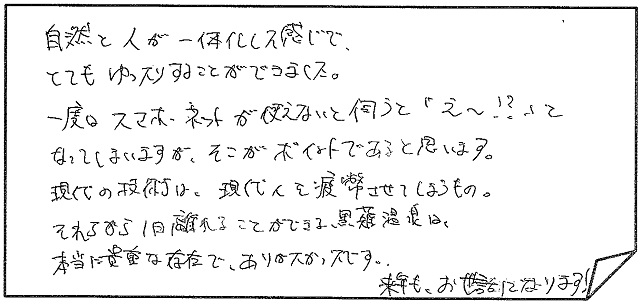 自然と人が一体化した感じで、
とてもゆったりすることができました。
一度はスマホ・ネットが使えないと伺うと「え～!?」と
なってしまいますが、そこがポイントであると思います。
現代の技術は、現代人を疲弊させてしまうもの。
それらから1日離れることができる、黒薙温泉は、
本当に貴重な存在で、ありがたかったです。
来年も、お世話になります!